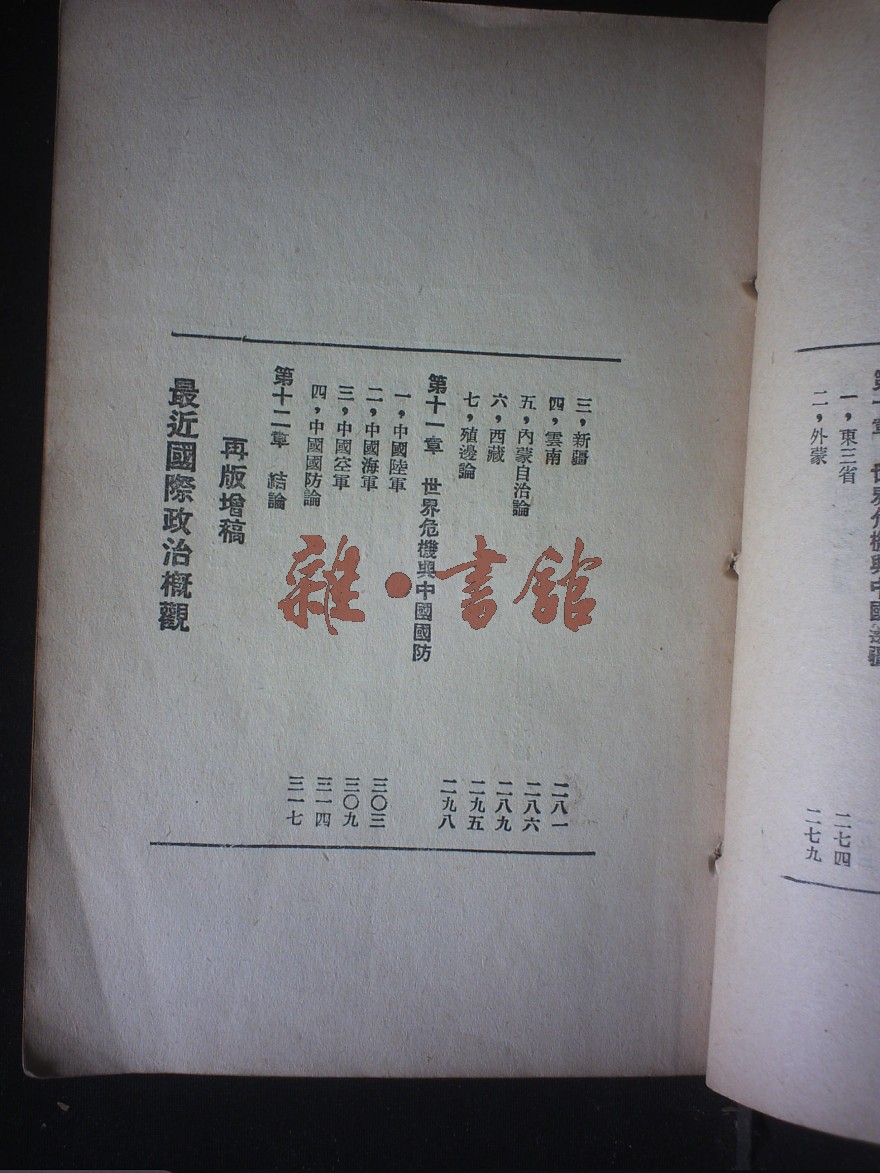 第十章 世界危機與中國邊疆
一,東三省 二七四
二,外蒙 二七九
三,新疆 二八一
四,雲南 二八六
五,內蒙自治論 二八九
六,西藏 二九五
七,殖邊論 二九八
第十一章 世界危機與中國國防
一,中國陸軍 三〇三
二,中國海軍 三〇九
三,中國空軍 三一四
四,中國國防論 三一七
第十二章 結論
再版增稿
最近國際政治概觀
雜·書館